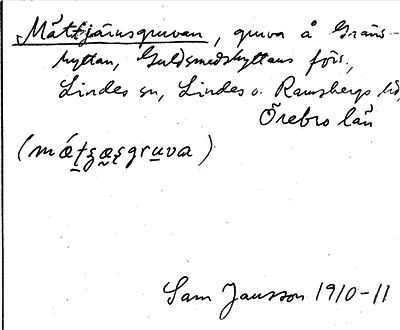 Måttjärnsgruvan, gruva å Gräns-
hyttan, Guldsmedshyttans förs.,
Lindes sn, Lindes o. Ramsbergs hd,
Örebro län
(mǽt̠ʂæ̰ʂgru̠va)
Sam Jansson 1910-11